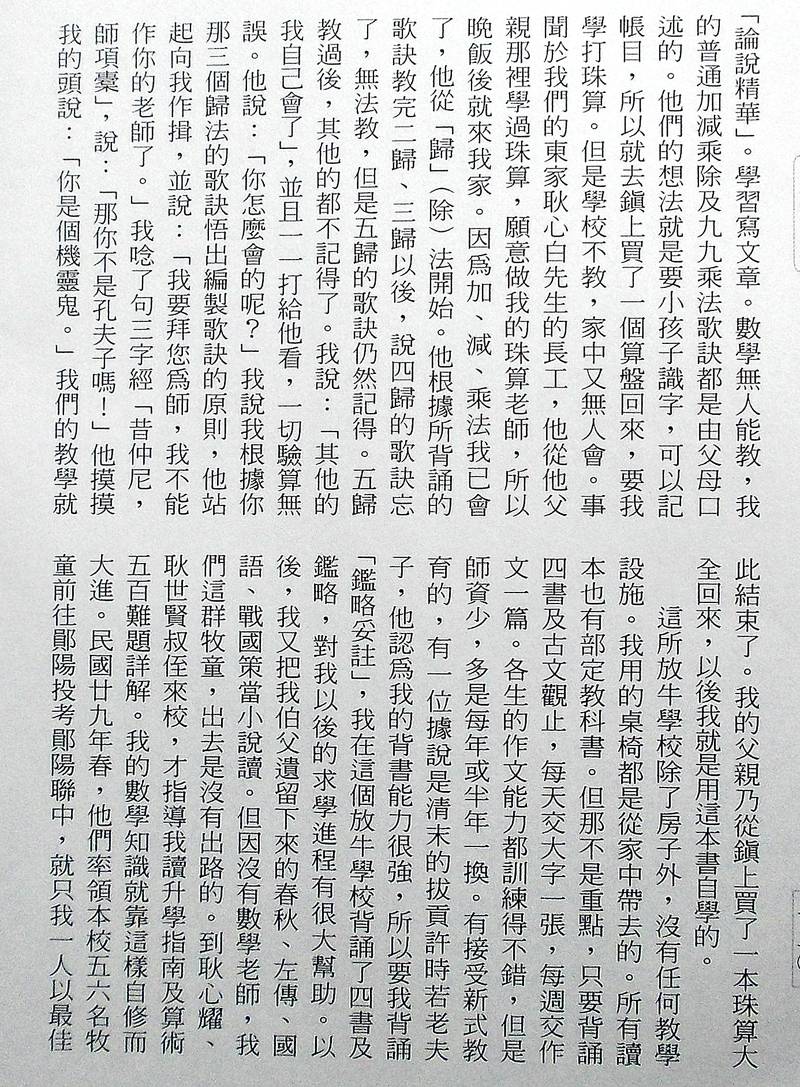 「論說精華」。學習寫文章。數學無人能教，我
的普通加減乘除及九九乘法歌訣都是由父母口
述的。他們的想法就是要小孩子識字，可以記
帳目，所以就去鎭上買了一個算盤回來，要我
學打珠算。但是學校不教，家中又無人會。事
聞於我們的東家耿心白先生的長工，他從他父
親那裡學過珠算，願意做我的珠算老師，所以
晚飯後就來我家。因爲加、減、乘法我已會
了，他從「歸」（除）法開始。他根據所背誦的
歌訣教完二歸、三歸以後，說四歸的歌訣忘
了，無法教，但是五歸的歌訣仍然記得。五歸
教過後，其他的都不記得了。我說：「其他的
我自己會了」，並且一一打給他看，一切驗算無
誤。他說：「你怎麼會的呢？」我說我根據你
那三個歸法的歌訣悟出編製歌訣的原則，他站
起向我作揖，並說：「我要拜您爲師，我不能
作你的老師了。」我唸了句三字經「昔仲尼，
師項橐」，說：「那你不是孔夫子嗎！」他摸摸
我的頭說：「你是個機靈鬼。」我們的教學就
此結束了。我的父親乃從鎭上買了一本珠算大
全回來，以後我就是用這本書自學的。
這所放牛學校除了房子外，沒有任何教學
設施。我用的桌椅都是從家中帶去的。所有讀
本也有部定教科書。但那不是重點，只要背誦
四書及古文觀止，每天交大字一張，每週交作
文一篇。各生的作文能力都訓練得不錯，但是
師資少，多是每年或半年一換。有接受新式教
育的，有一位據說是清末的拔貢許時若老夫
子，他認爲我的背書能力很強，所以要我背誦
「鑑略妥註」，我在這個放牛學校背誦了四書及
鑑略，對我以後的求學進程有很大幫助。以
後，我又把我伯父遺留下來的春秋、左傳、國
語、戰國策當小說讀。但因沒有數學老師，我
們這群牧童，出去是沒有出路的。到耿心耀、
耿世賢叔侄來校，才指導我讀升學指南及算術
五百難題詳解。我的數學知識就靠這樣自修而
大進。民國廿九年春，他們率領本校五六名牧
童前往鄖陽投考鄖陽聯中，就只我一人以最佳